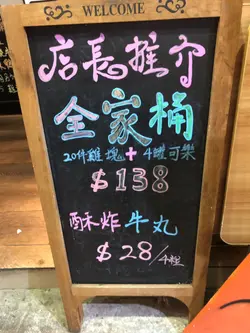 WELCOME
店長推介
全家桶
20件雞塊+4罐可樂
$138
酥炸牛丸
$28/4粒